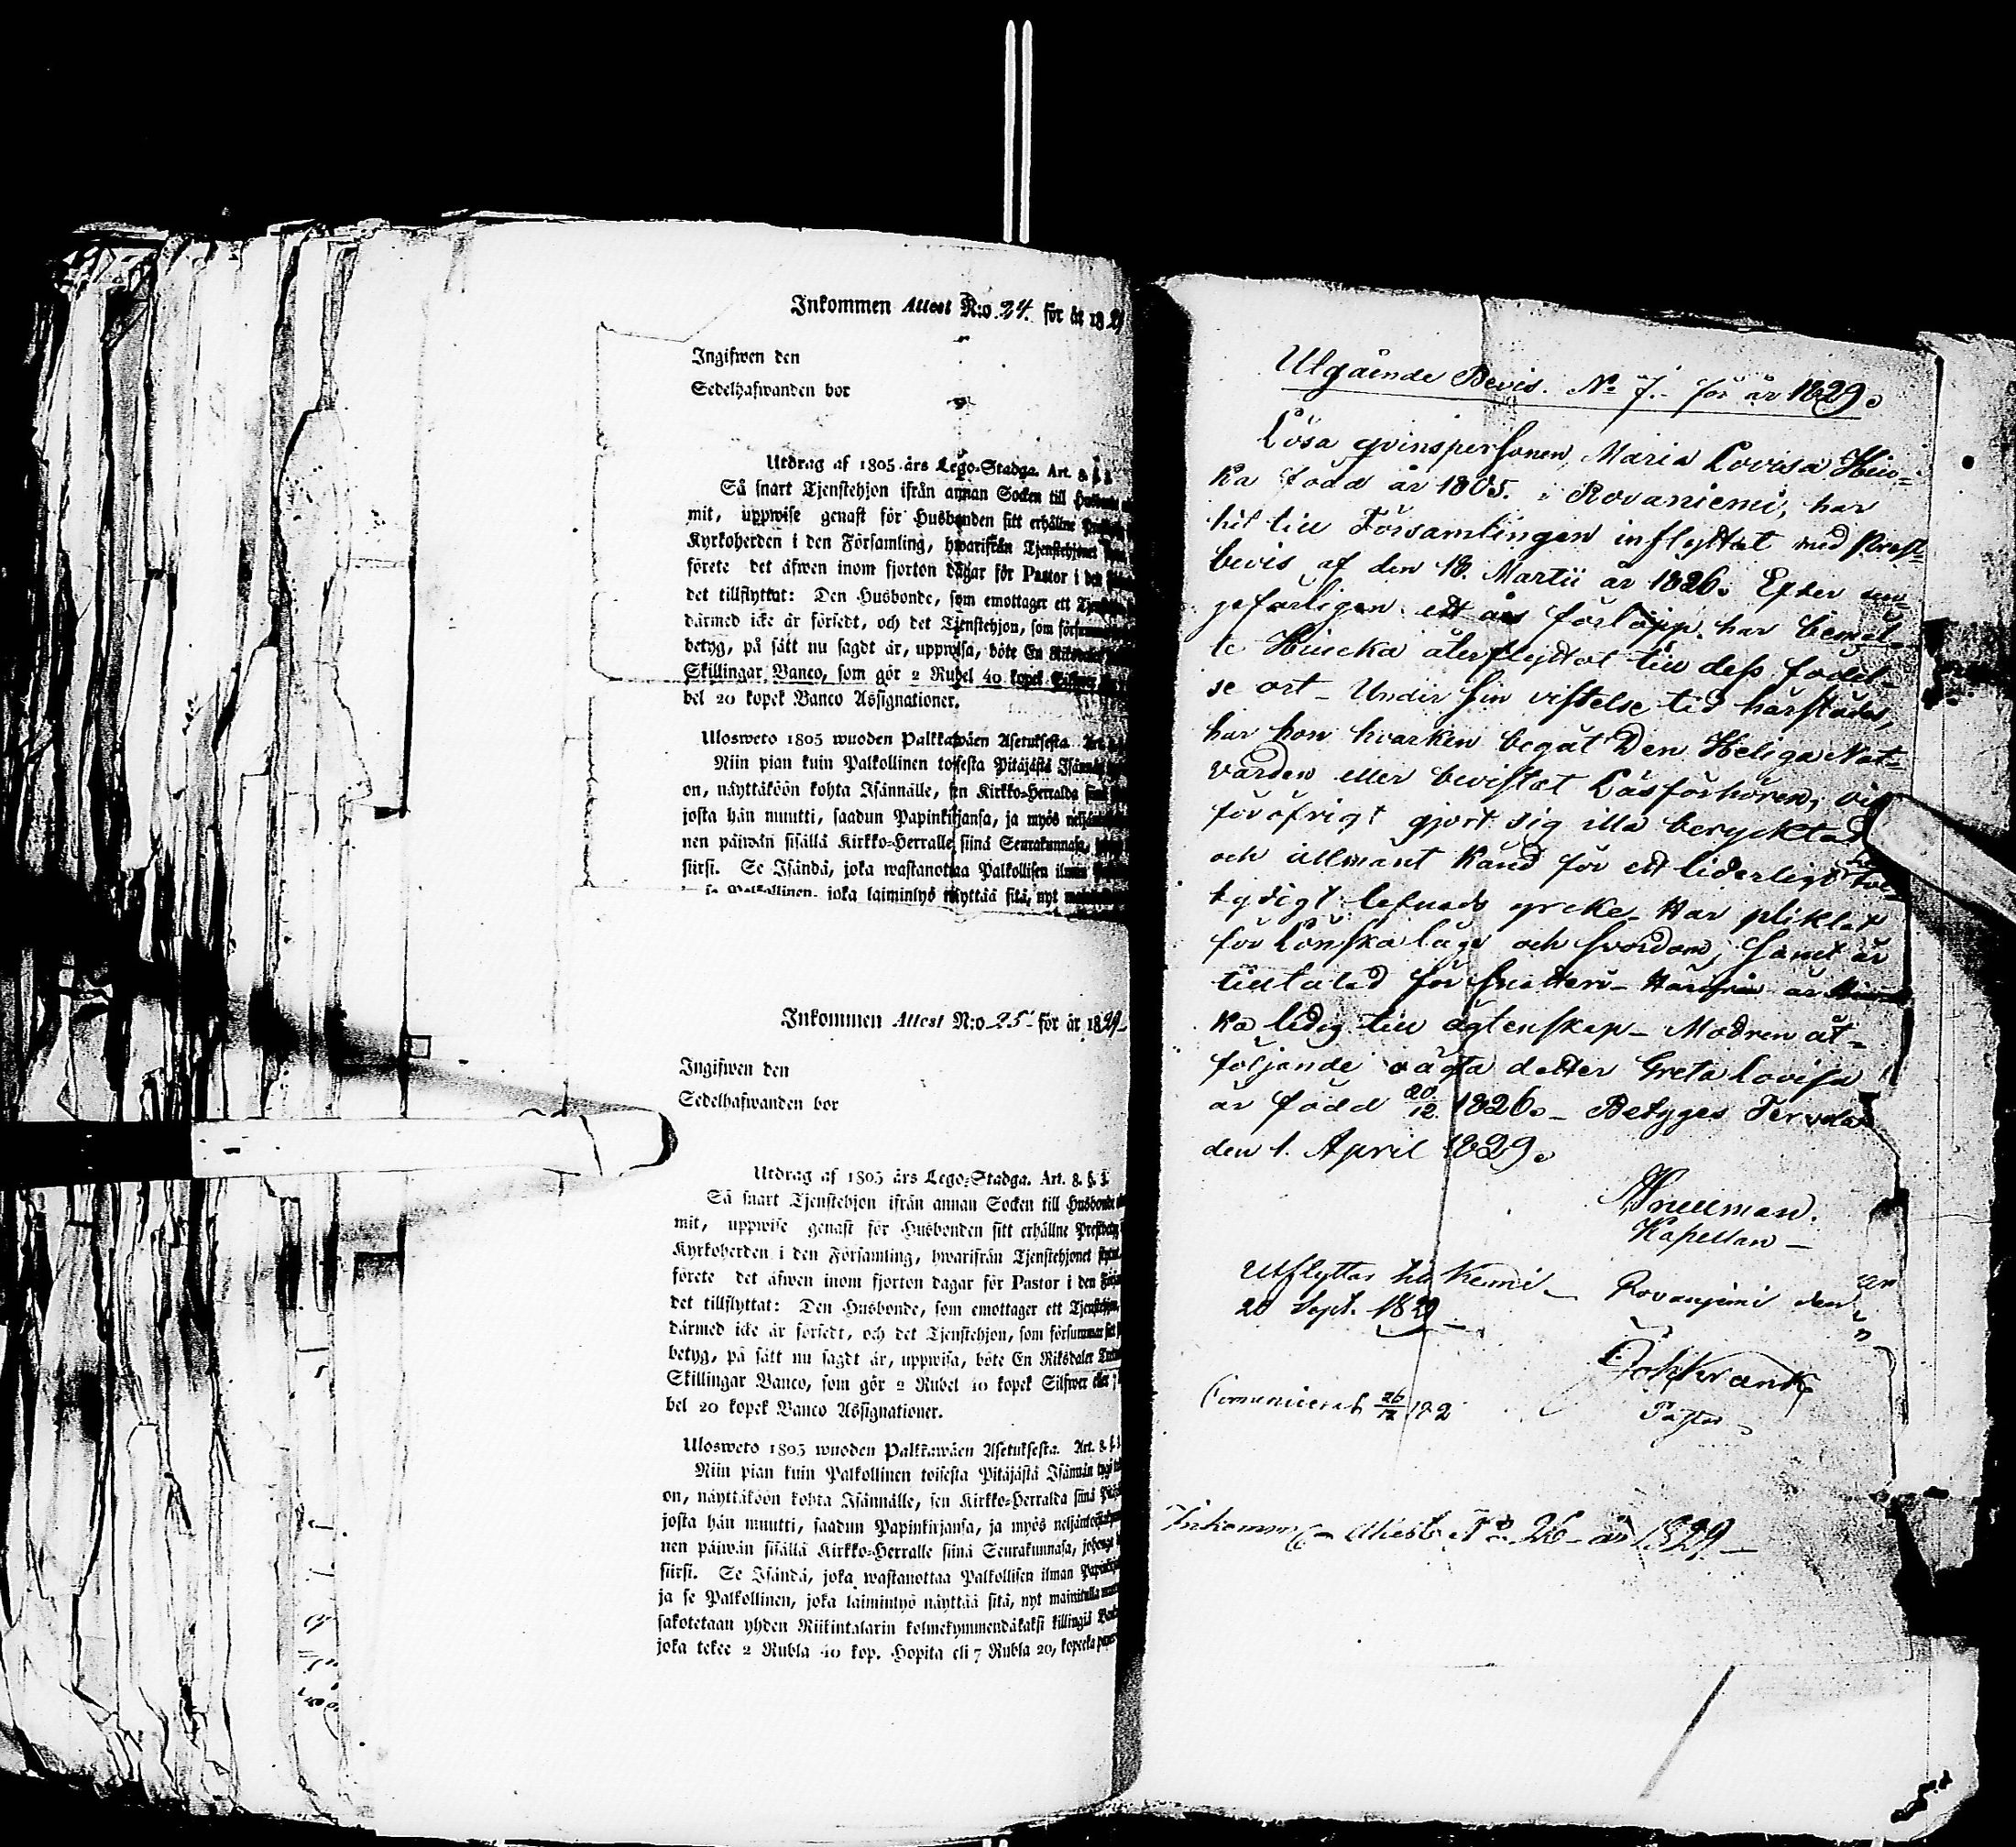 Inkommen Attest N:o 24. för år 1829
Ingifwen den
Sedelhafwanden bor
Utdrag af 1805 års Lego-Stadga. Art. 8. §. 3.
Så snart Tjenstehjon ifrån annan Socken till Husbonde
mit, uppwise genast för Husbonden sitt erhållne
Kyrkoherden i den Församling, hwarifrån Tjenstehjonet
förete det äfwen inom fjorton dagar för Pastor i den
det tillflyttat: Den Husbonde, som emottager ett
därmed icke är försedt, och det Tjenstehjon, som
betyg, på sätt nu sagdt är, uppwisa, böte En Riksdaler
Skillingar Banco, som gör 2 Rubel 40 kopek Silfwer
bel 20 kopek Banco Assignationer.
Ulosweto 1805 wuoden Palkkawäen Asetuksesta. Art.
Niin pian kuin Palkollinen toisesta Pitäjästä Isännän
on, näyttäköön kohta Isännälle, sen Kirkko-Herralda siinä
josta hän muutti, saadun Papinkirjansa, ja myös
nen päiwän sisällä Kirkko-Herralle siinä Seurakunnasa,
siirsi. Se Isändä, joka wastanottaa Palkollisen ilman
ja se Palkollinen, joka laiminlyö näyttää sitä, nyt
Inkommen Attest N:o 25 för år 1829
Ingifwen den
Sedelhafwanden bor
Utdrag af 1805 års Lego-Stadga. Art. 8. §. 3.
Så snart Tjenstehjon ifrån annan Socken till Husbonde
mit, uppwise genast för Husbonden sitt erhållne Prestbetyg
Kyrkoherden i den Församling, hwarifrån Tjenstehjonet
förete det äfwen inom fjorton dagar för Pastor i den
det tillflyttat: Den Husbonde, som emottager ett Tjenstehjon,
därmed icke är försedt, och det Tjenstehjon, som försummar
betyg, på sätt nu sagdt är, uppwisa, böte En Riksdaler
Skillingar Banco, som gör 2 Rubel 40 kopek Silfwer eller 7
bel 20 kopek Banco Assignationer.
Ulosweto 1805 wuoden Palkkawäen Asetuksesta. Art. 8. §.
Niin pian kuin Palkollinen toisesta Pitäjästä Isännän
on, näyttäköön kohta Isännälle, sen Kirkko-Herralda siinä
josta hän muutti, saadun Papinkirjansa, ja myös
nen päiwän sisällä Kirkko-Herralle siinä Seurakunnasa,
siirsi. Se Isändä, joka wastanottaa Palkollisen ilman
ja se Palkollinen, joka laiminlyö näyttää sitä, nyt
sakotetaan yhden Riikintalarin kolmekymmendäkaksi killingiä
joka tekee 2 Rubla 40 kop. Hopita eli 7 Rubla 20, kopeekka
Utgående Bevis. No 7. för år 1829.
Lösa qvinspersonen, Maria Lovisa Hiuc-
ka född år 1805. i Rovaniemi, har
hit till Församlingen inflyttat med Prest-
bevis af den 18. Martii år 1826. Efter un-
gefärligen ett års förlopp har bemäl-
te Hiucka återflyttat till dess födel-
se ort - Under sin vistelse tid härstädes,
har hon hvarken begåt Den Heliga Nat-
varden eller bevistat Läsförhören,
föröfrigt gjort sig illa beryktad
och allmänt känd för ett liderligt
tydigt lefnads yrcke - Har pliktat
för Lönskaläge och hordom, samt är
tilltalad för snatteri -
ka ledig till ägtenskap - Modren åt-
följande oägta dotter Greta Lovisa
är född 20/12 1826. - Betyges Tervola
den 1. April 1829.
Kapellan -
Utflyttar till Kemi -
20 Sept. 1829 -
Rovanjemi den
Pastor
26/12
Inkommen Attest No 26 - år 1829 -